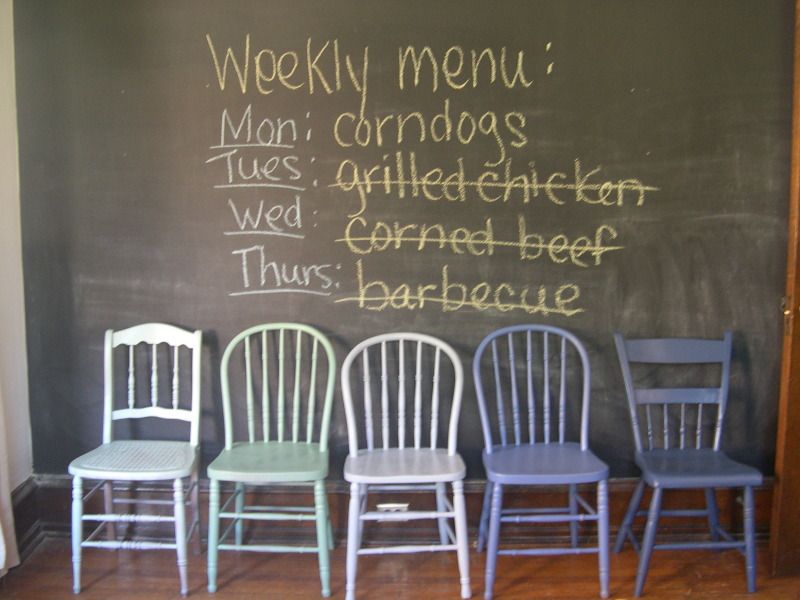 Weekly menu:
Mon: corndogs
Tues: grilled chicken
Wed: corned beef
Thurs: barbecue